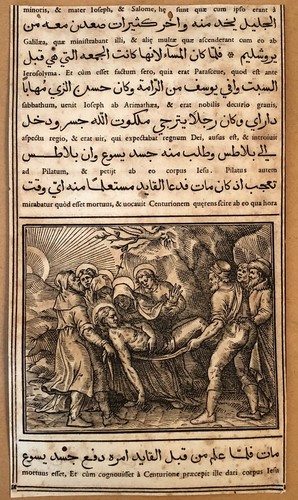 minoris, & mater Joseph, & Salome, hę sunt quæ cum ipso erant à
الجليل يخدمنه واخر كثيرات صعدن معه من
Galilæa, quæ ministrabāt illi, & alię multæ quæ ascenderant cum eo ab
يروشليم * فلما كان المسآء لانها كانت الجمعه التي هي قبل
Ierosolyma. Et cùm esset factum sero, quia erat Parasceue, quod est ante
السبت وافي يوسف من الرامة وكان حسن الزي مهابا
sabbathum, uenit Ioseph ab Arimathæa, & erat nobilis decurio grauis,
داراي وكان رجلا يترجي ملكوت الله جسر ودخل
aspectu regio, & erat uir, qui expectabat regnum Dei, ausus est, & introiuit
الي بلاطس وطلب منه جسد يسوع وان بلاطس
ad Pilatum, & petijt ab eo corpus Iesu. Pilatus autem
تعجب اذ كان مات فدعا القايد مستعلما منه اي وقت
mirabatur quòd esset mortuus, & uocauit Centurionem quęrens scire ab eo qua hora
مات فلما علم من قبل القايد امره دفع جسد يسوع
mortuus esset, Et cùm cognouisset à Centurione præcepit ille dari corpus Iesu